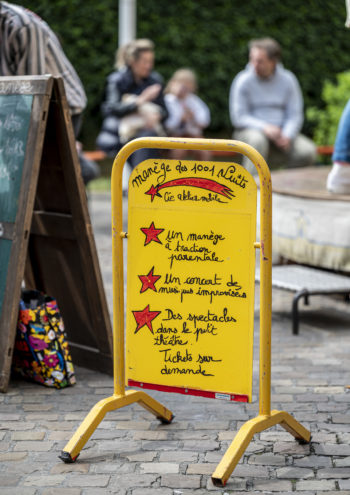 manège des 1001 Nuits
Cie ablas mobile
Un manège
à traction
parentale
Un concert de
musiques improvisées
Des spectacles
dans le p'tit
théâtre.
Tickets sur
demande